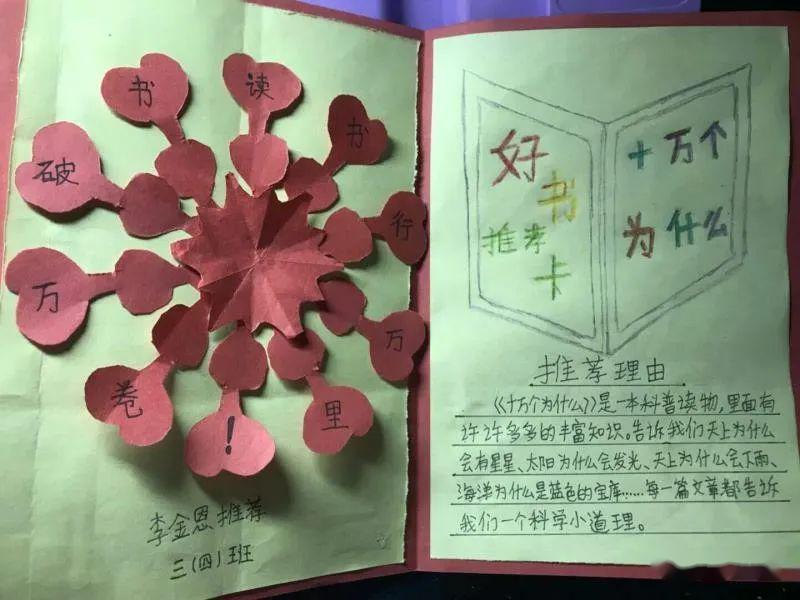 读书破万卷
书行万里
！
李金恩推荐
三(四)班
好
书
推荐
卡
十万个
为什么
推荐理由
《十万个为什么》是一本科普读物,里面有
许许多多的丰富知识。告诉我们天上为什么
会有星星、太阳为什么会发光、天上为什么会下雨、
海洋为什么是蓝色的宝库……每一篇文章都告诉
我们一个科学小道理。